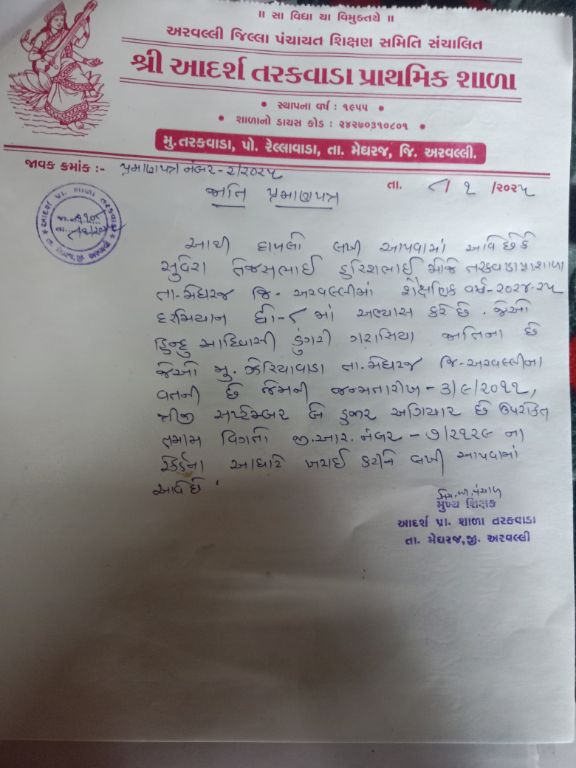 ॥ સા વિદ્યા યા વિમુક્તયે ॥
અરવલ્લી જિલ્લા પંચાયત શિક્ષણ સમિતિ સંચાલિત
શ્રી આદર્શ તરકવાડા પ્રાથમિક શાળા
• સ્થાપના વર્ષ : ૧૯૫૫ •
• શાળાનો ડાયસ કોડ : ૨૪૨૭૦૩૧૦૮૦૧ •
મુ.તરકવાડા, પો. રેલ્લાવાડા, તા. મેઘરજ, જિ. અરવલ્લી.
જાવક ક્રમાંક :- પ્રમાણપત્ર નંબર-૨/૨૦૨૫
તા. ૮/૧/૨૦૨૫
જાતિ પ્રમાણપત્ર
આથી દાખલો લખી આપવામાં આવે છે કે
સુવેરા તેજસભાઈ હરિશભાઈ તરકવાડા પ્રા.શાળા
તા-મેઘરજ જિ-અરવલ્લીમાં શૈક્ષણિક વર્ષ-૨૦૨૪-૨૫
દરમિયાન ધો-૮ માં અભ્યાસ કરે છે. જેઓ
હિન્દુ આદિવાસી ડુંગરી ગરાસિયા જાતિના છે
જેઓ મુ. તા-મેઘરજ જિ-અરવલ્લીના
વતની છે જેમની જન્મતારીખ-૩/૯/૨૦૧૧,
ત્રીજી સપ્ટેમ્બર બે હજાર અગિયાર છે ઉપરોક્ત
તમામ વિગતો જી.આર. નંબર-૭/૨૧૨૯ ના
રેકર્ડના આધારે ખરાઈ કરીને લખી આપવામાં
આવે છે.
મુખ્ય શિક્ષક
આદર્શ પ્રા. શાળા તરકવાડા
તા. મેઘરજ,જી. અરવલ્લી